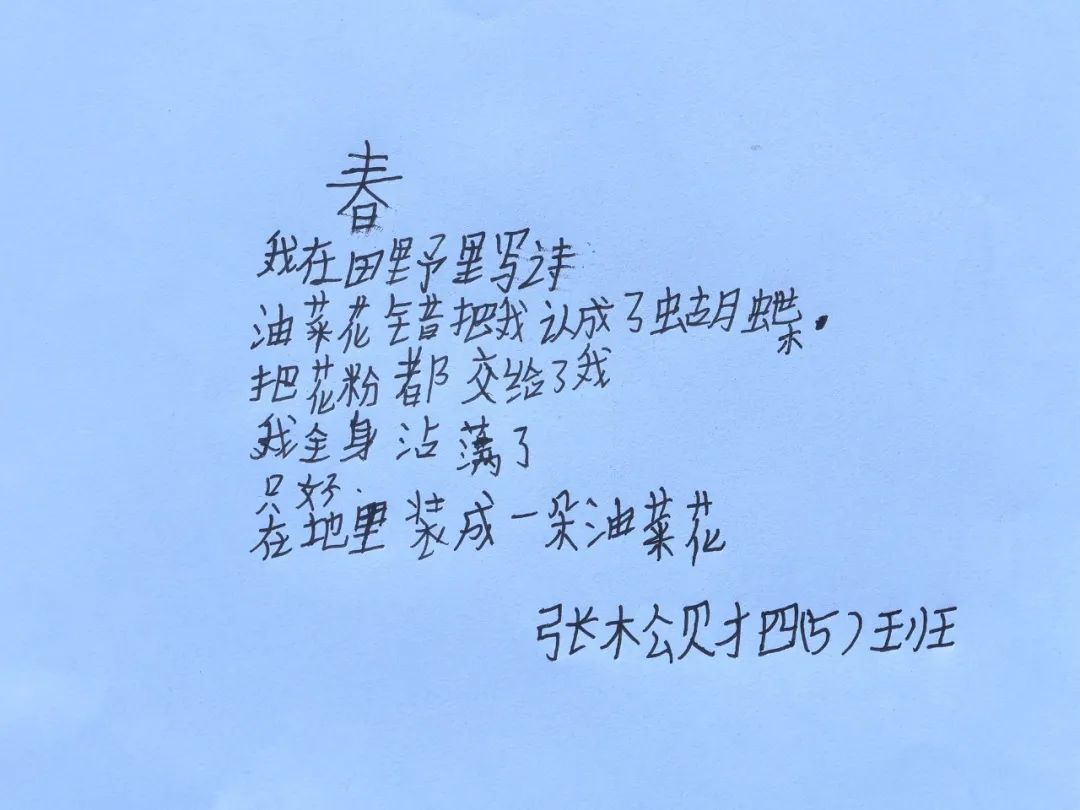 春
我在田野里写诗
油菜花错把我认成了蝴蝶.
把花粉都交给了我
我全身沾满了
只好
在地里装成一朵油菜花
张木公财四(5)班